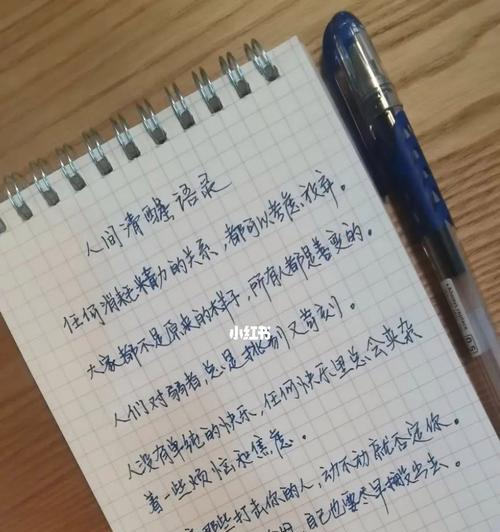 人间清醒语录
任何消耗精力的关系，都可以考虑放弃。
大家都不是原来的样子，所有人都是善变的。
人们对弱者，总是挑剔又苛刻。
小红书
人没有单纯的快乐，任何快乐里总会夹杂
着一些烦恼和焦虑。
那些打击你的人，动不动就否定你。
自己也要尽早搬出去。
0.5